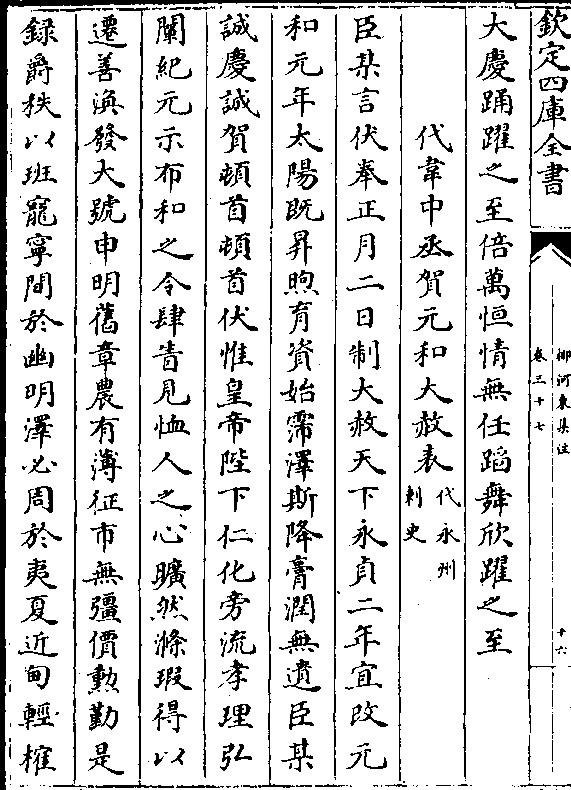 欽定四庫全書
柳河東集注
卷三十七
十六
大慶踊躍之至倍萬恒情無任蹈舞欣躍之至
代韋中丞賀元和大赦表代永州刺史
臣某言伏奉正月二日制大赦天下永貞二年宜改元
和元年太陽既昇煦育資始霈澤斯降膏潤無遺臣某
誠慶誠賀頓首頓首伏惟皇帝陛下仁化旁流孝理弘
闡紀元示布和之令肆眚見恤人之心曠然滌瑕得以
遷善渙發大號申明舊章農有薄征市無彊價勲勤是
録爵秩以班寵寧間於幽明澤必周於夷夏近甸輕榷